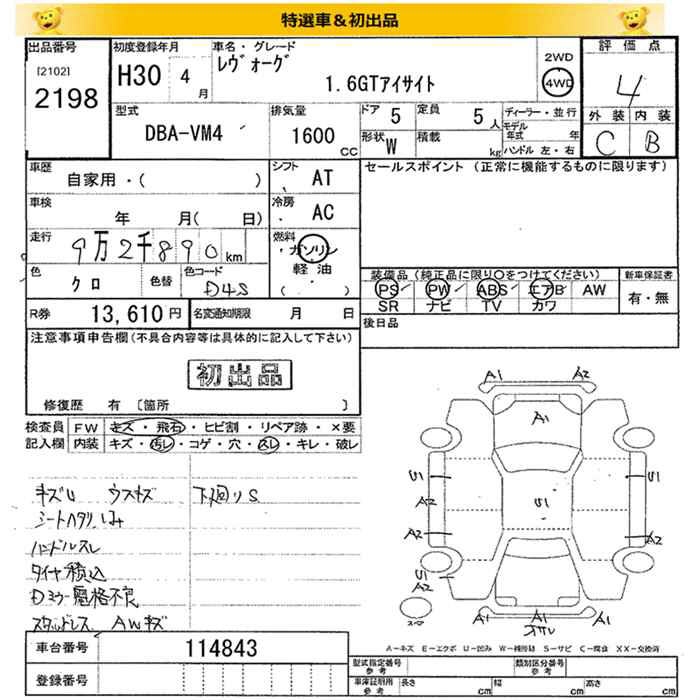 特選車&初出品
出品番号
[2102]
2198
初度登録年月
H30 4月
車名・グレード
レヴォーグ
1.6GTアイサイト
2WD
4WD
評価点
4
外装 内装
C B
型式
DBA-VM4
排気量
1600 CC
ドア 5
定員 5人
形状 W
積載 kg
ディーラー・並行
モデル年式 年
ハンドル 左・右
車歴
自家用・( )
シフト
AT
セールスポイント (正常に機能するものに限ります)
車検
年 月( 日)
冷房
AC
走行
9万2千890km
燃料
ガソリン
軽油
( )
色
クロ
色替
色コード
D4S
装備品 (純正品に限り○をつけてください)
PS PW ABS エアB AW
SR ナビ TV カワ
新車保証書
有・無
R券 13,610円
名変通知期限 月 日
後日品
注意事項申告欄(不具合内容等は具体的に記入して下さい)
初出品
修復歴 有 [箇所 ]
検査員記入欄
FW キズ・飛石・ヒビ割・リペア跡・×要
内装 キズ・汚レ・コゲ・穴・スレ・キレ・破レ
キズU ウスキズ 下廻りS
シートヘタリ
ハンドルスレ
タイヤ積込
Dミラー電格不良
スタッドレス AWキズ
A1 A2
A1
S1 S1
A2 S1
A2 A2
S1
A2 A1 A2
A-キズ E-エクボ U-凹み W-補修跡 S-サビ C-腐食 XX-交換済
車台番号 114843
登録番号
型式指定番号 参考
類別区分番号 参考
車庫証明用 参考
長さ cm 幅 cm 高さ cm